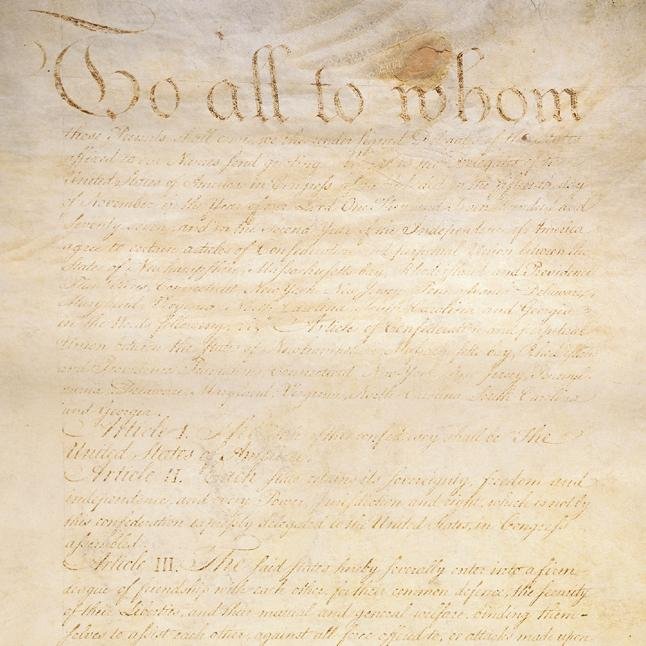 To all to whom
these Presents shall come, we the under signed Delegates of the States
affixed to our Names send greeting. Whereas the Delegates of the
United States of America in Congress assembled did on the fifteenth day
of November in the Year of our Lord One Thousand Seven Hundred and
Seventy seven, and in the Second Year of the Independence of America
agree to certain articles of Confederation and perpetual Union between the
States of Newhampshire, Massachusetts-bay, Rhodeisland and Providence
Plantations, Connecticut, New York, New Jersey, Pennsylvania, Delaware,
Maryland, Virginia, North-Carolina, South-Carolina and Georgia
in the Words following, viz. Articles of Confederation and perpetual
Union between the States of Newhampshire, Massachusetts-bay, Rhodeisland
and Providence Plantations, Connecticut, New York, New Jersey, Pennsyl-
vania, Delaware, Maryland, Virginia, North-Carolina, South-Carolina
and Georgia.
Article I. The Stile of this confederacy shall be "The
United States of America."
Article II. Each state retains its sovereignty, freedom and
independence, and every Power, Jurisdiction and right, which is not by
this confederation expressly delegated to the United States, in Congress
assembled.
Article III. The said states hereby severally enter into a firm
league of friendship with each other, for their common defence, the security
of their Liberties, and their mutual and general welfare, binding them-
selves to assist each other, against all force offered to, or attacks made upon